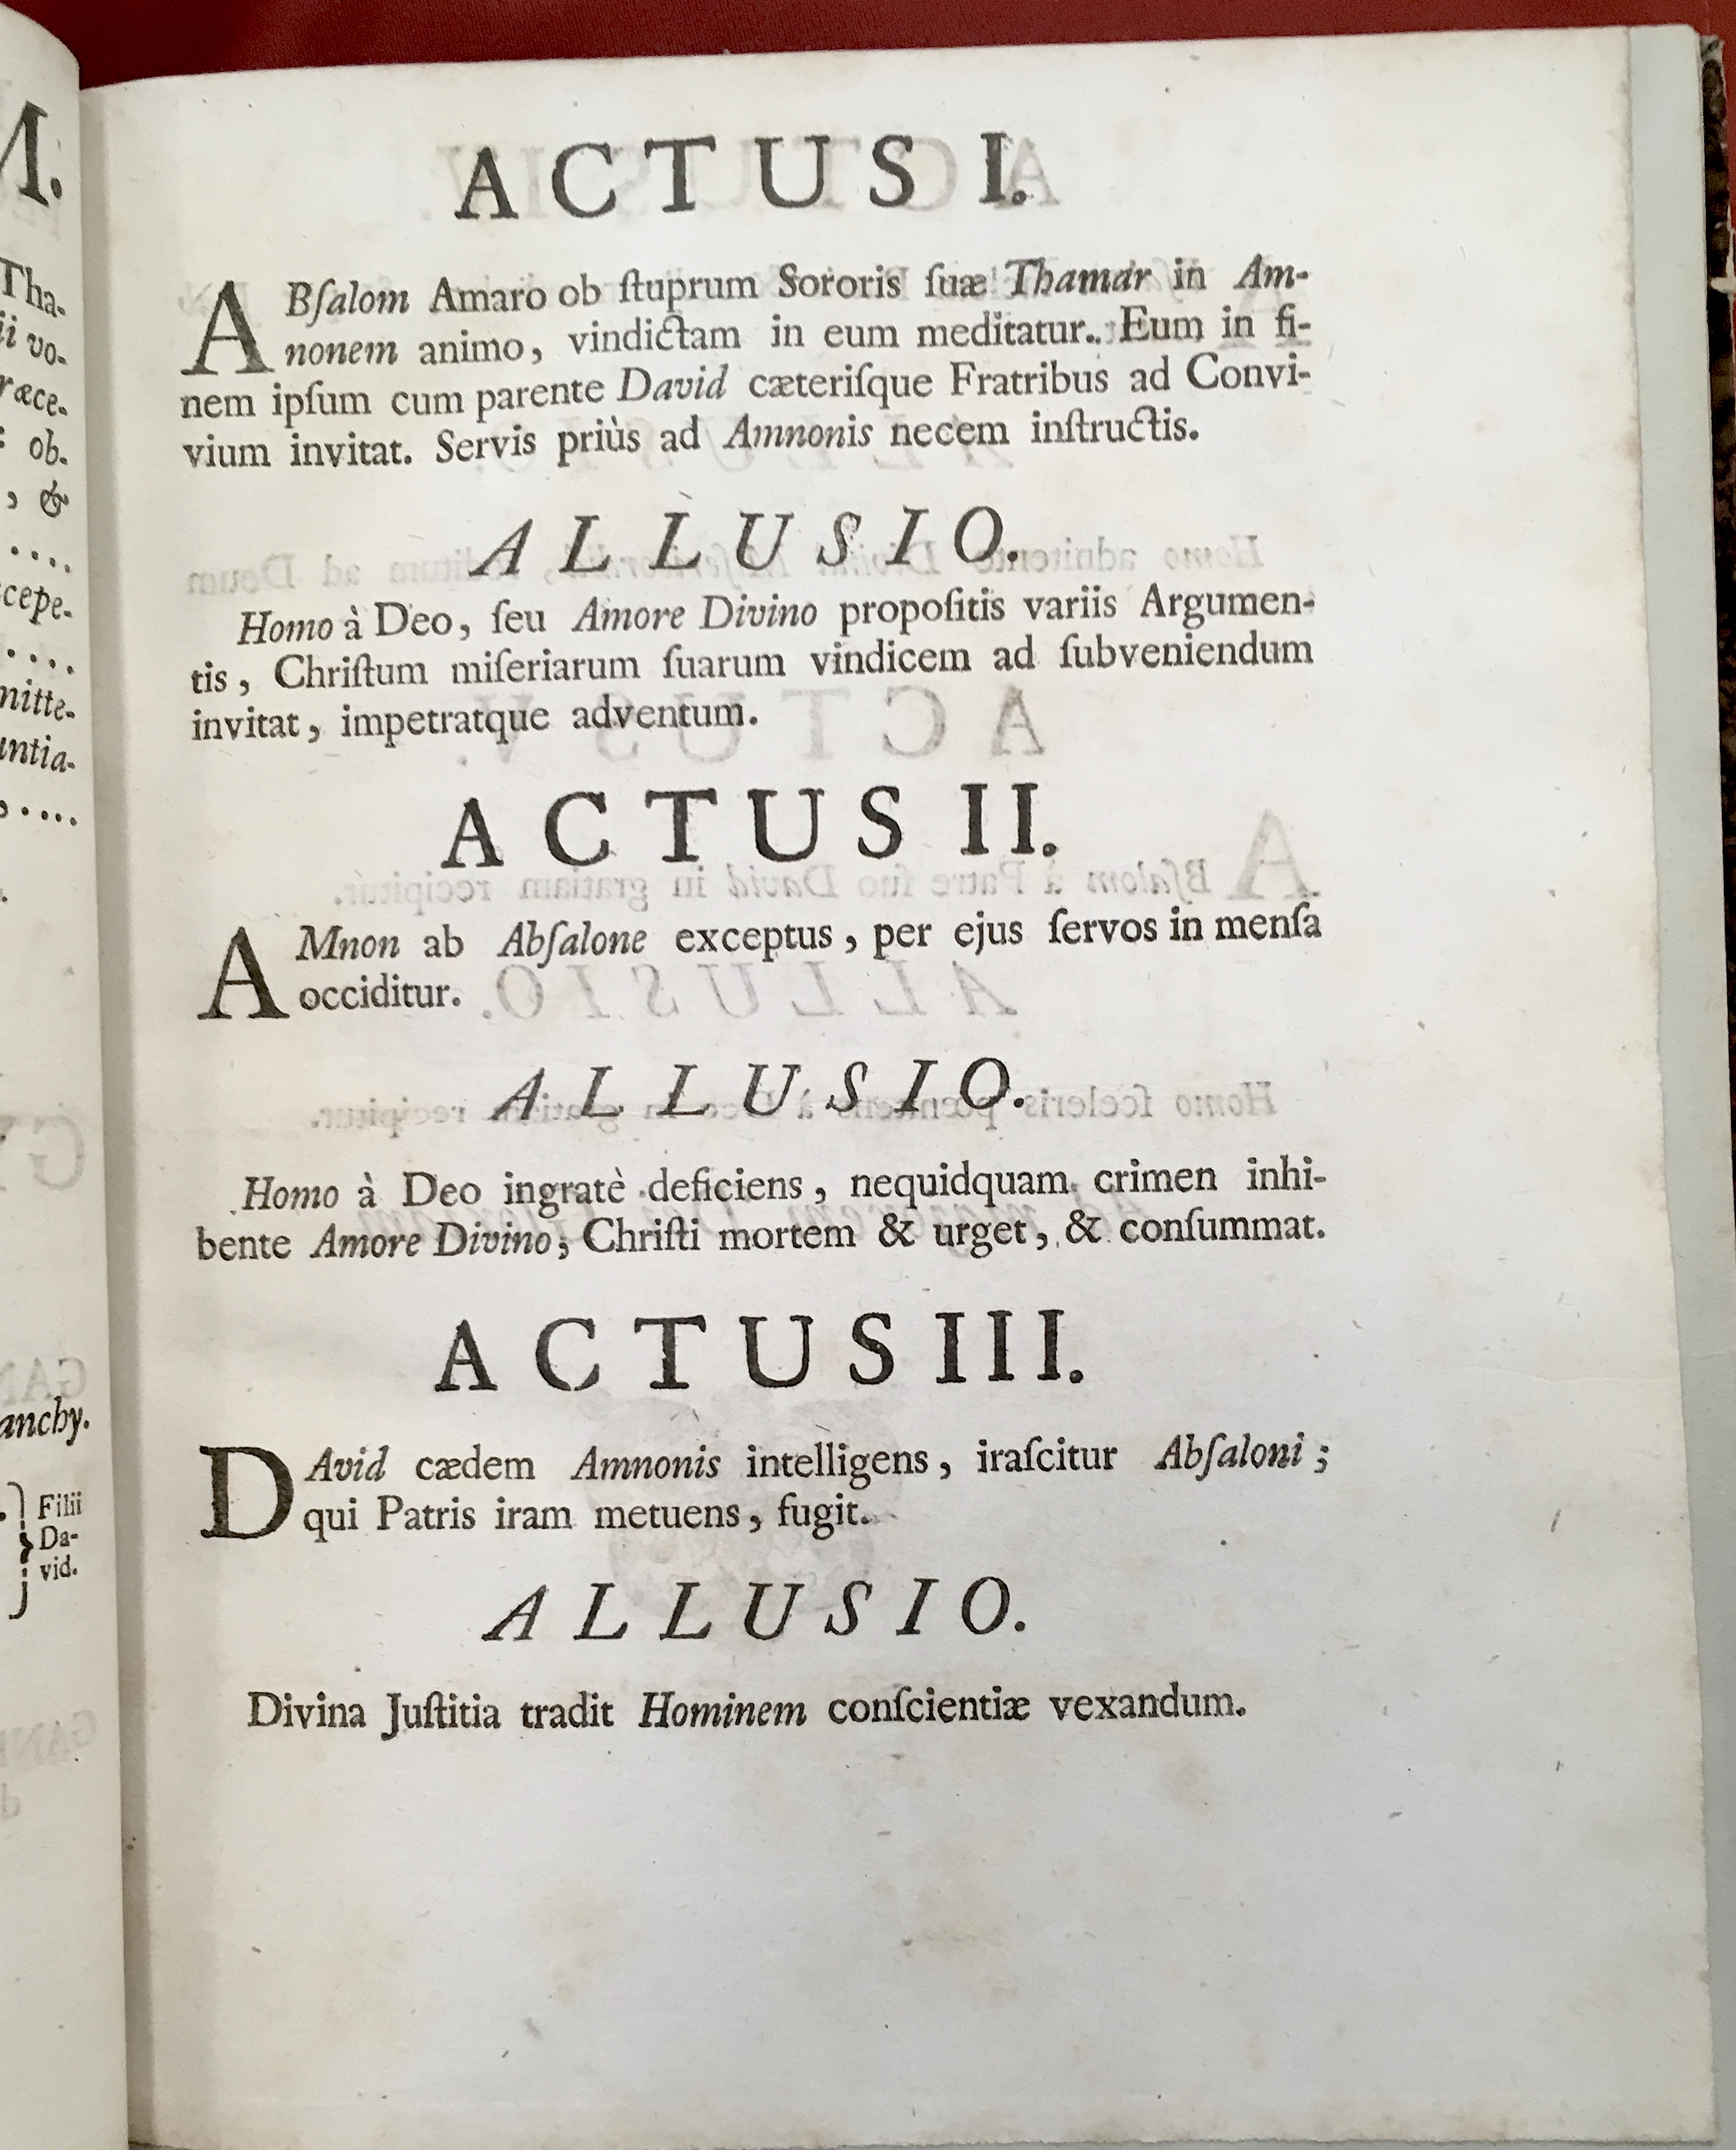 M.
Tha-
ii vo-
ræce-
ob-
, &
....
cepe-
....
mitte-
untia-
, ....
anchy.
Filii
Da-
vid.
ACTUS I.
ABſalom Amaro ob ſtuprum Sororis ſuæ Thamar in Am-
nonem animo, vindictam in eum meditatur. Eum in fi-
nem ipſum cum parente David cæteriſque Fratribus ad Convi-
vium invitat. Servis priùs ad Amnonis necem inſtructis.
ALLUSIO.
Homo à Deo, ſeu Amore Divino propoſitis variis Argumen-
tis, Chriſtum miſeriarum ſuarum vindicem ad ſubveniendum
invitat, impetratque adventum.
ACTUS II.
AMnon ab Abſalone exceptus, per ejus ſervos in menſa
occiditur.
ALLUSIO.
Homo à Deo ingratè deficiens, nequidquam crimen inhi-
bente Amore Divino; Chriſti mortem & urget, & conſummat.
ACTUS III.
DAvid cædem Amnonis intelligens, iraſcitur Abſaloni;
qui Patris iram metuens, fugit.
ALLUSIO.
Divina Juſtitia tradit Hominem conſcientiæ vexandum.